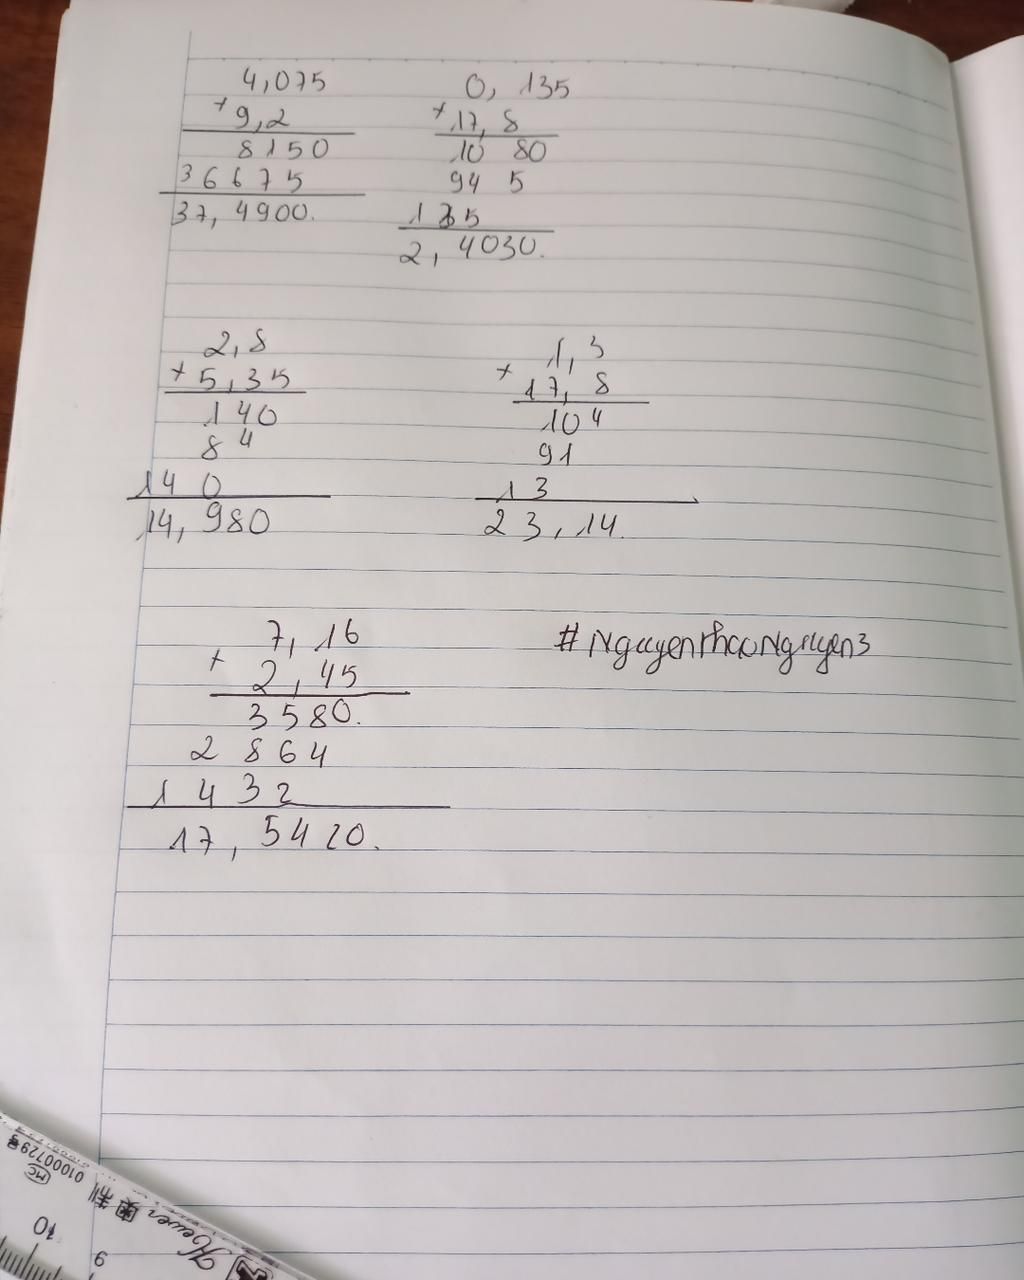 4,075
× 9,2
8150
36675
37,4900.
0,135
× 17,8
10 80
94 5
135
2,4030.
2,8
× 5,35
140
84
140
14,980
1,3
× 17,8
104
91
13
23,14.
7,16
× 2,45
3580.
2864
1432
17,5420.
#NguyenthaoNguyen3
01000729号
MC
奥利
Hewer
10
9